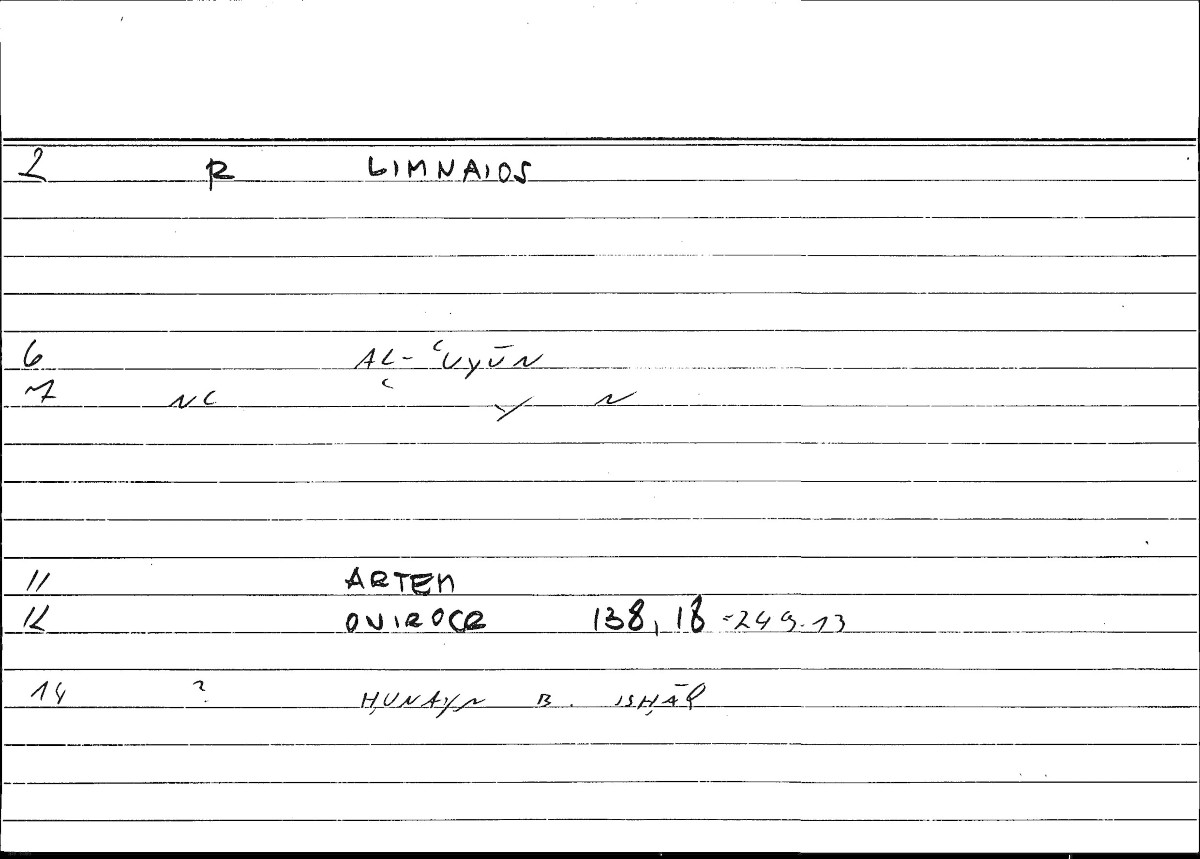 2 R LIMNAIOS
6 AL-ʿUYŪN
7 NC ʿ Y N
11 ARTEM
12 OVIROCR 138,18 =249.13
14 ? ḤUNAYN B. ISḤĀQ